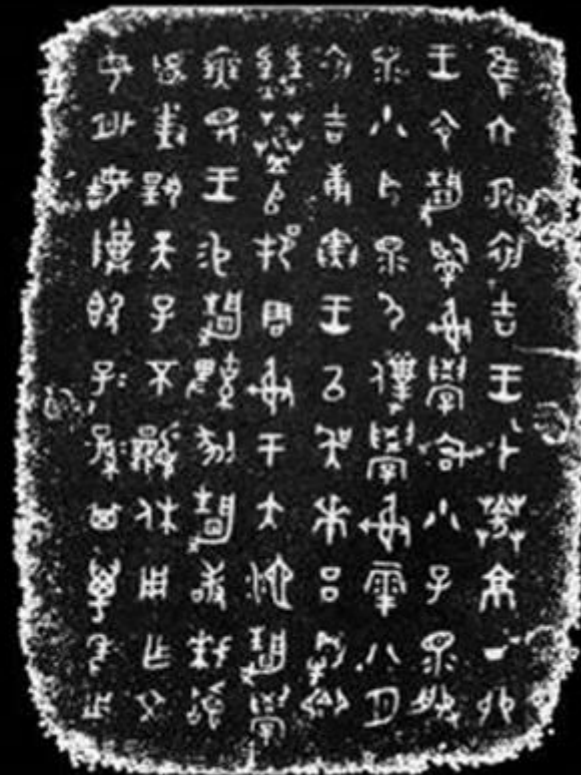 隹六月初吉王才𦯧京丁卯
王令靜𤔲射學宮小子眔服
眔小臣眔尸僕學射雩八月
初吉庚寅王以吳𠦪呂剛
𦯧𠂤邦周射于大池靜學
無王易靜鞞剢靜敢拜𩒨
首對揚天子不顯休用乍文
母外姞𬯚簋子=孫=其萬年用